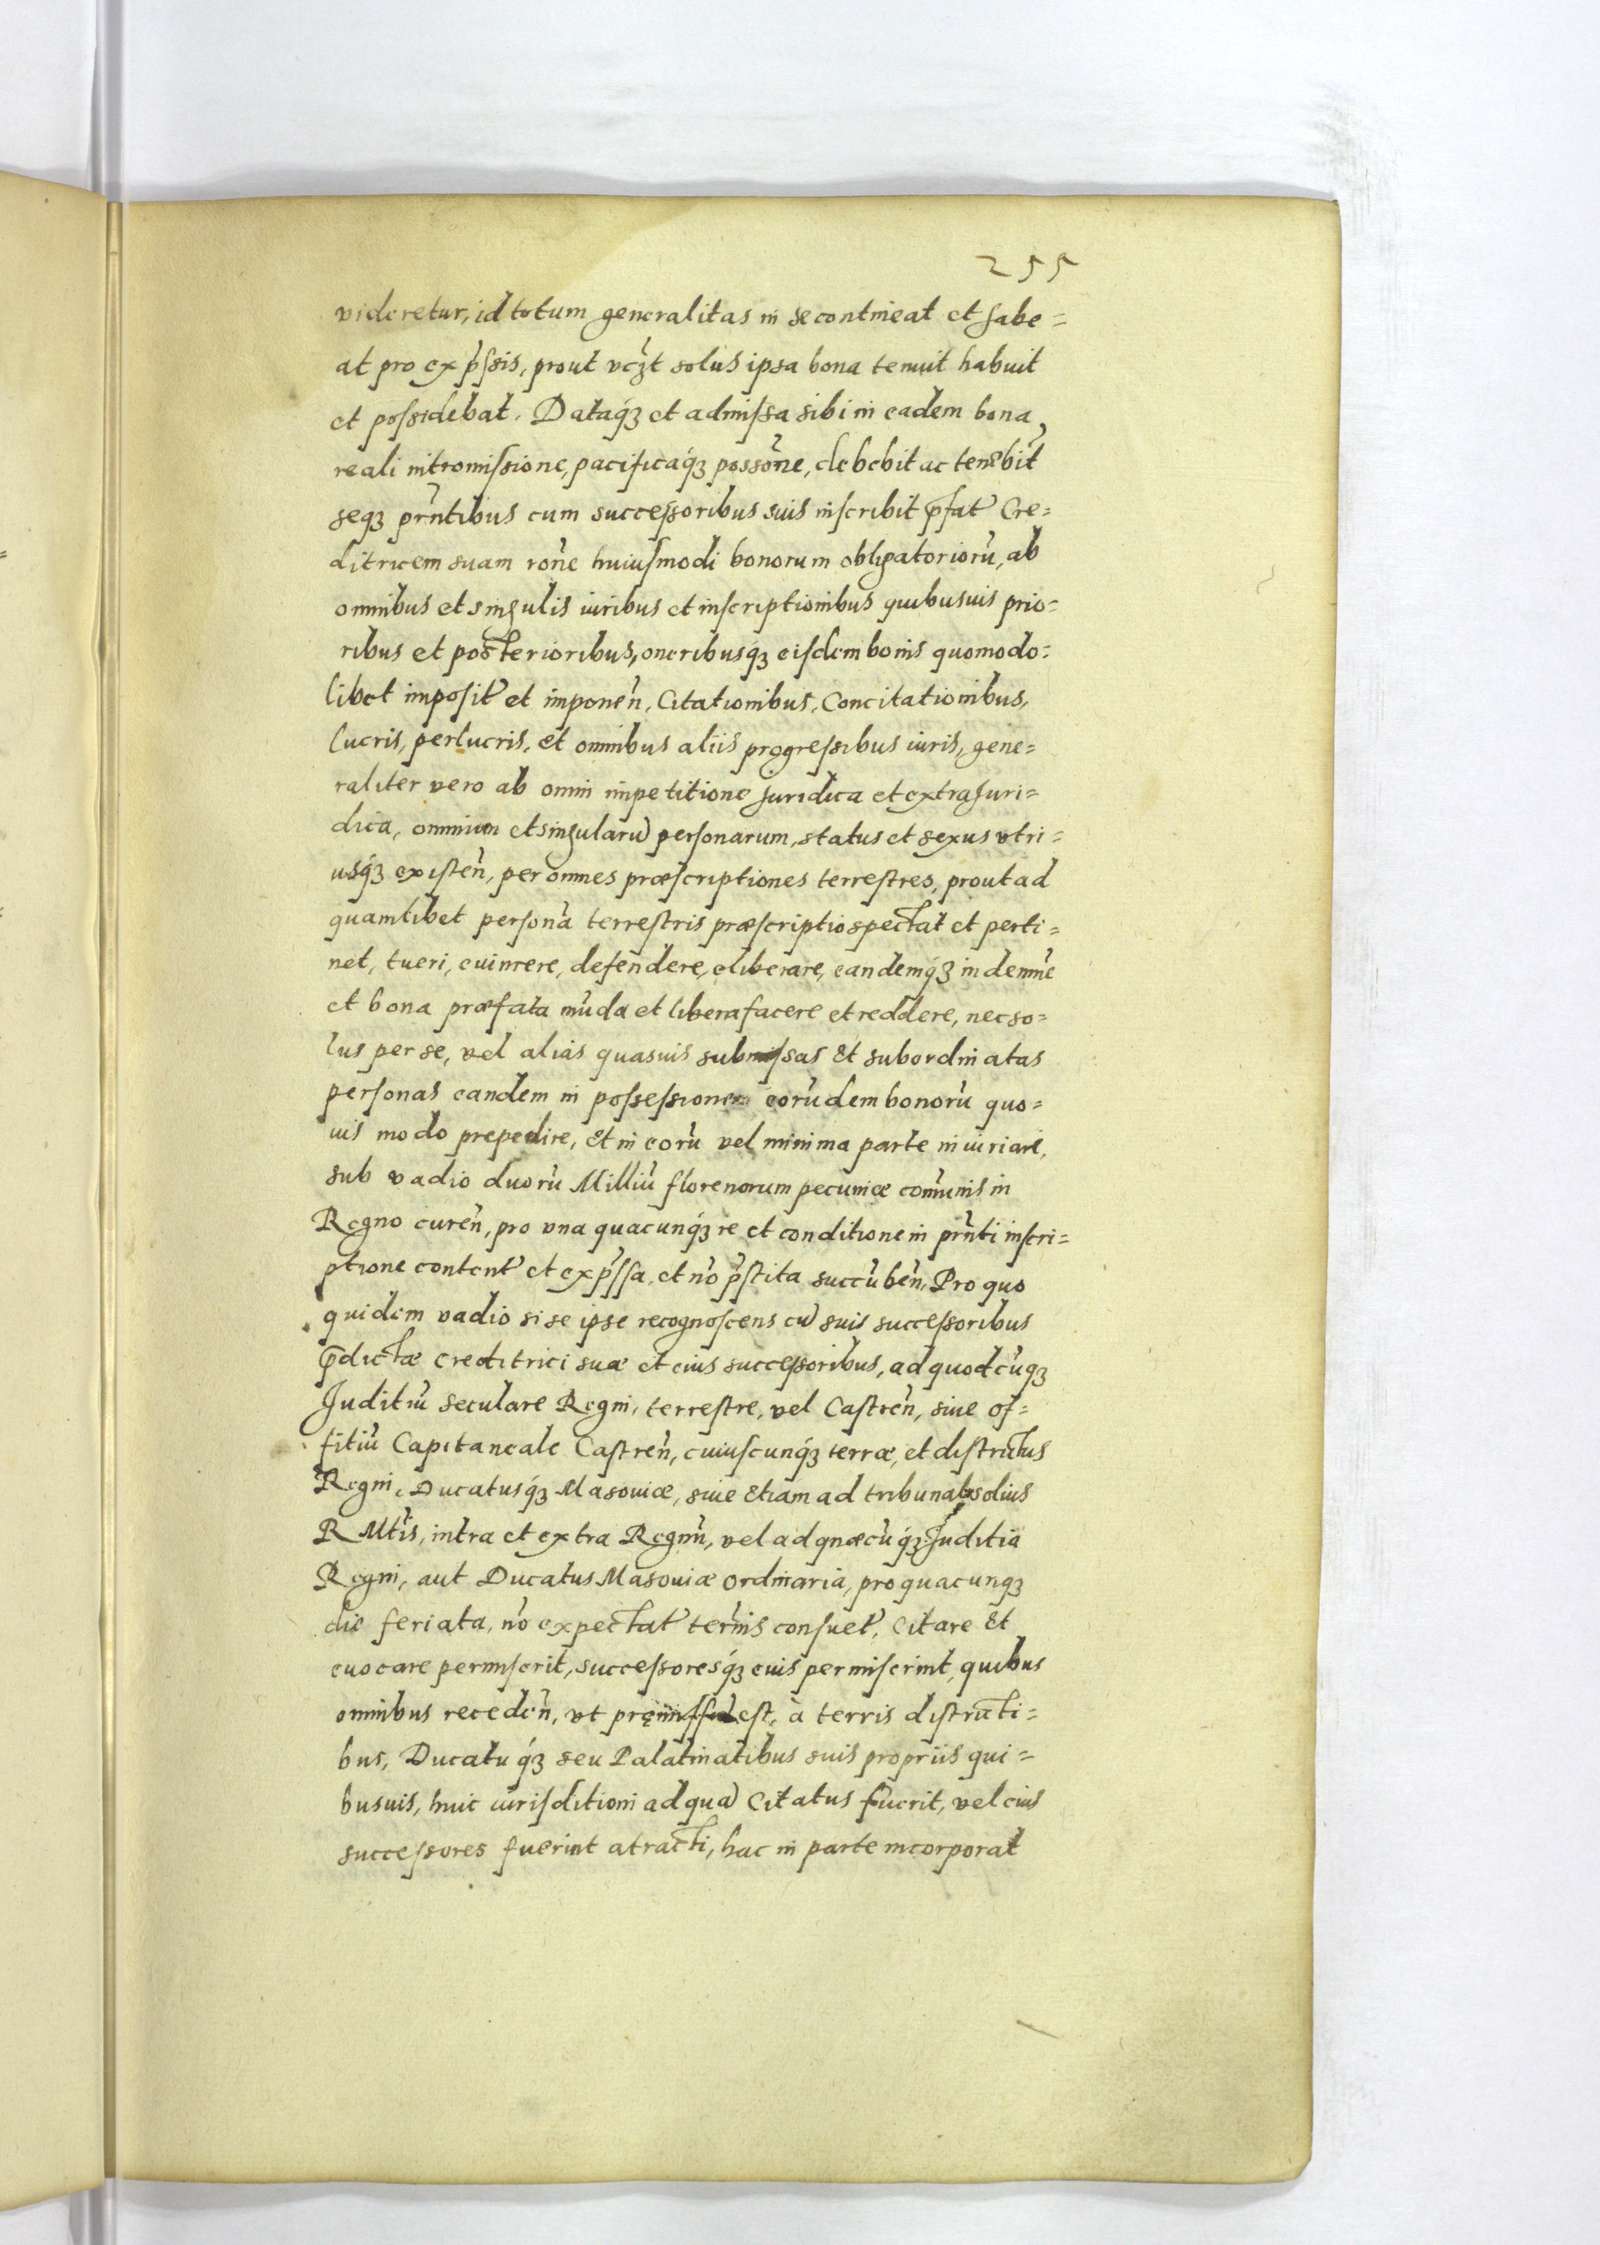 255
videretur, id totum generalitas in se contineat et habe=
at pro exp̃ssis, prout vcꝫt solus ipsa bona tenuit habuit
et possidebat. Dataqꝫ et admissa sibi in eadem bona,
reali intromissione, pacificaqꝫ possõne, debebit ac tenebit̃
seqꝫ prñtibus cum successoribus suis inscribit p̃fat̃ Cre=
ditricem suam rõne huiusmodi bonorum obligatoriorũ, ab
omnibus et singulis iuribus et inscriptionibus quibusuis prio=
ribus et posterioribus, oneribusqꝫ eisdem bonis quomodo=
libet imposit̃ et imponeñ, Citationibus, Concitationibus,
lucris, perlucris, et omnibus aliis progressibus iuris, gene=
raliter vero ab omni impetitione Juridica et extraJuri=
dica, omnium et singularũ personarum, status et sexus vtri=
usqꝫ existeñ, per omnes præscriptiones terrestres, prout ad
quamlibet personã terrestris præscriptio spectat et perti=
net, tueri, euincere, defendere, eliberare, eandemqꝫ indemnẽ
et bona præfata mũda et libera facere et reddere, nec so=
lus per se, vel alias quasuis submissas et subordinatas
personas eandem in possessione eorũdem bonorũ quo=
uis modo prepedire, et in eorũ vel minima parte iniuriare,
sub vadio duorũ Milliũ florenorum pecuniæ com̃unis in
Regno cureñ, pro vna quacunqꝫ re et conditione in prñti inscri=
ptione content̃ et exp̃ssa, et nõ p̃stita succũbeñ, Pro quo
quidem vadio si se ipse recognoscens cũ suis successoribus
p̃dictæ creditrici suæ et eius successoribus, ad quodcũqꝫ
Juditiũ seculare Regni, terrestre, vel Castreñ, siue of=
fitiũ Capitaneale Castreñ, cuiuscunqꝫ terræ, et districtus
Regni, Ducatusqꝫ Masouiæ, siue etiam ad tribunal solius
R Mtĩs, intra et extra Regnũ, vel ad quæcũqꝫ Juditia
Regni, aut Ducatus Masouiæ ordinaria, pro quacunqꝫ
die feriata, nõ expectat̃ term̃is consuet̃, citare et
euocare permiserit, successoresqꝫ euis permiserint, quibus
omnibus recedeñ, vt premissũ est, à terris districti=
bus, Ducatuqꝫ seu Palatinatibus suis propriis qui=
busuis, huic iurisditioni ad quã Citatus fuerit, vel eius
successores fuerint atracti, hac in parte incorporat